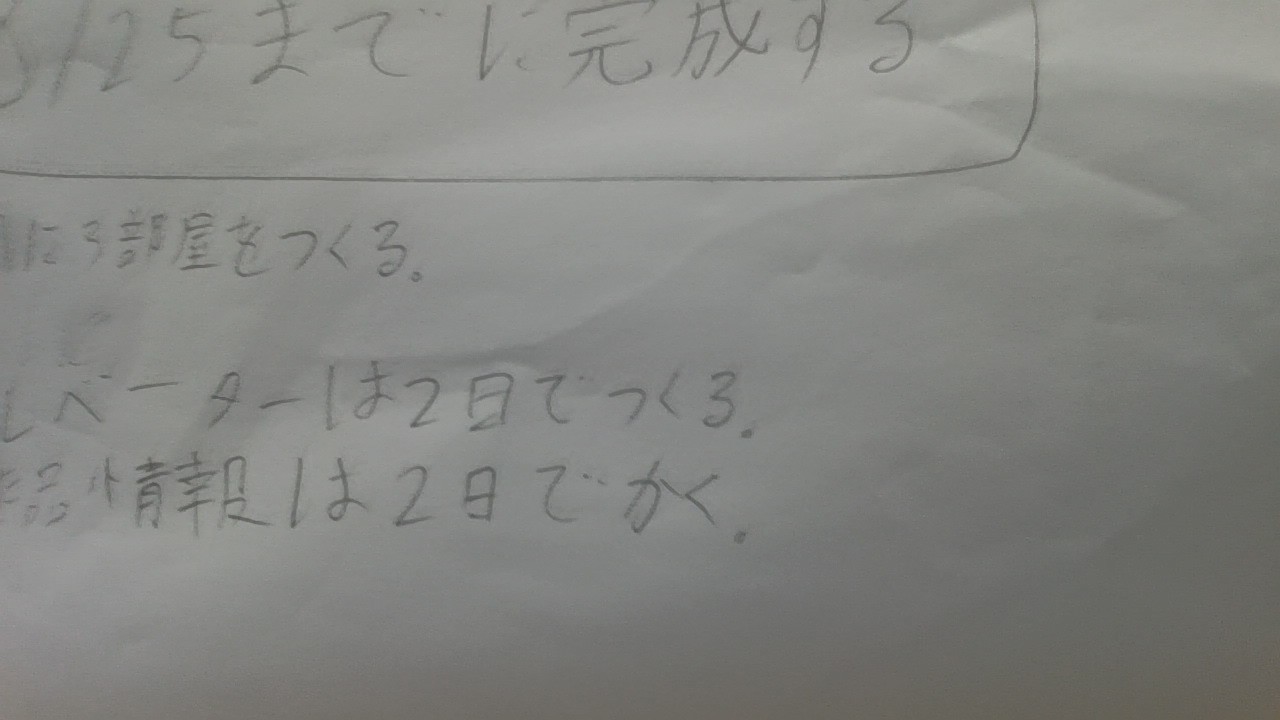 /25までに完成する
に3部屋をつくる。
レベーターは2日でつくる。
情報は2日でかく。